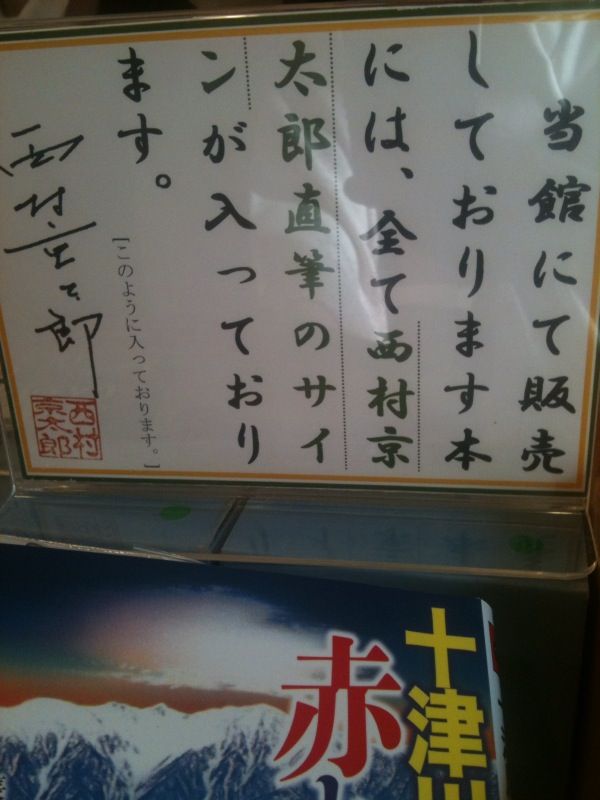 当館にて販売
しております本
には、全て西村京
太郎直筆のサイ
ンが入っており
ます。
[このように入っております。]
西村京太郎
西村
京太郎
十津川
赤